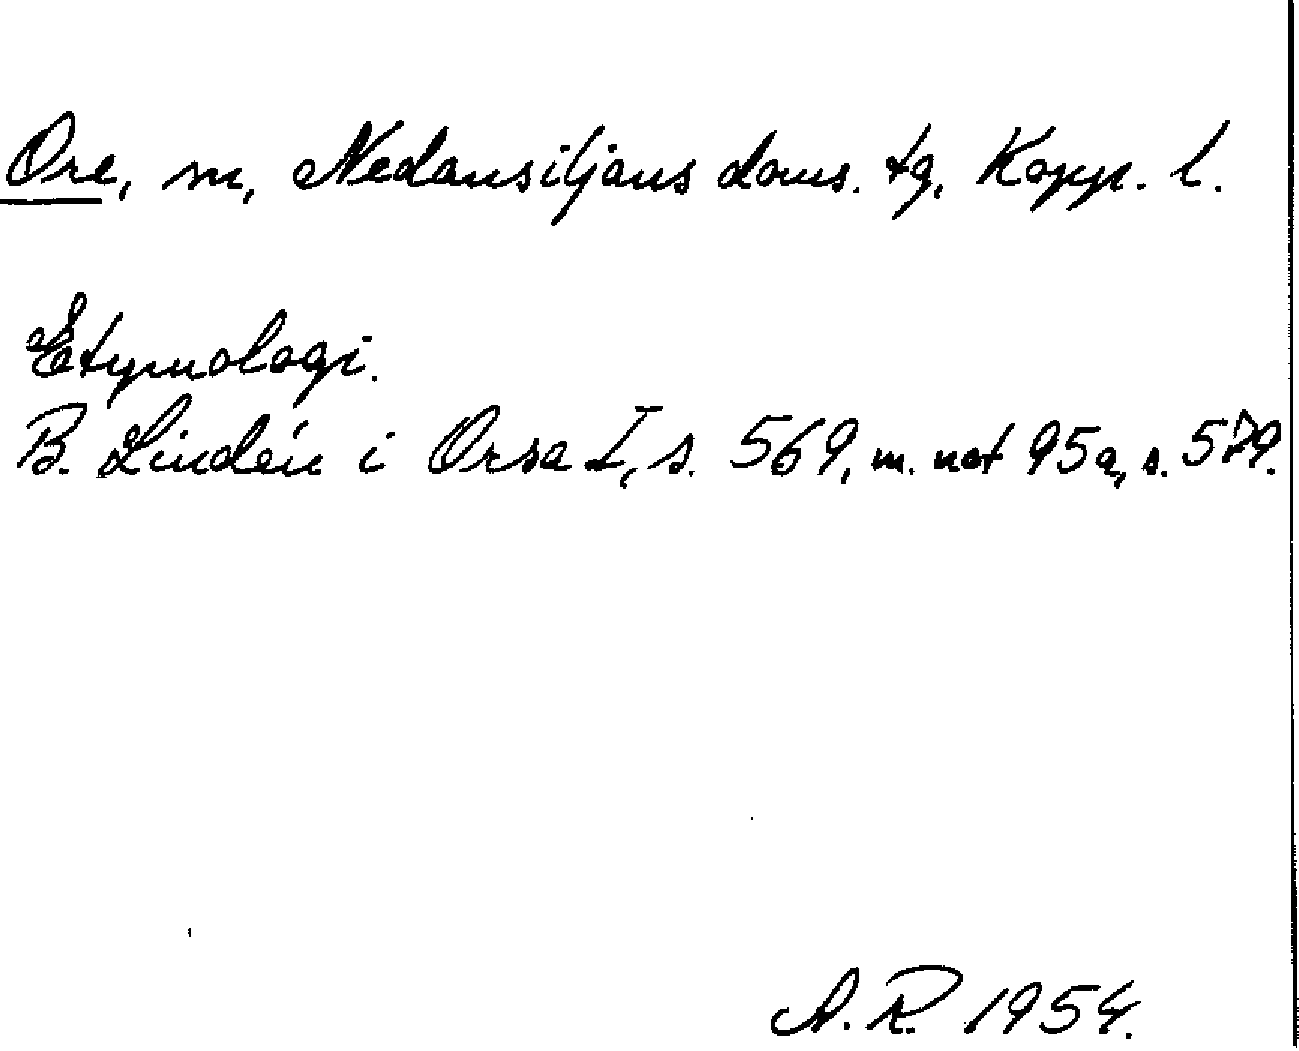 Ore, sn, Nedansiljans doms. tg, Kopp. l.
Etymologi.
B. Lindén i Orsa I, s. 569, m. not 95a, s. 579.
A.R. 1954.